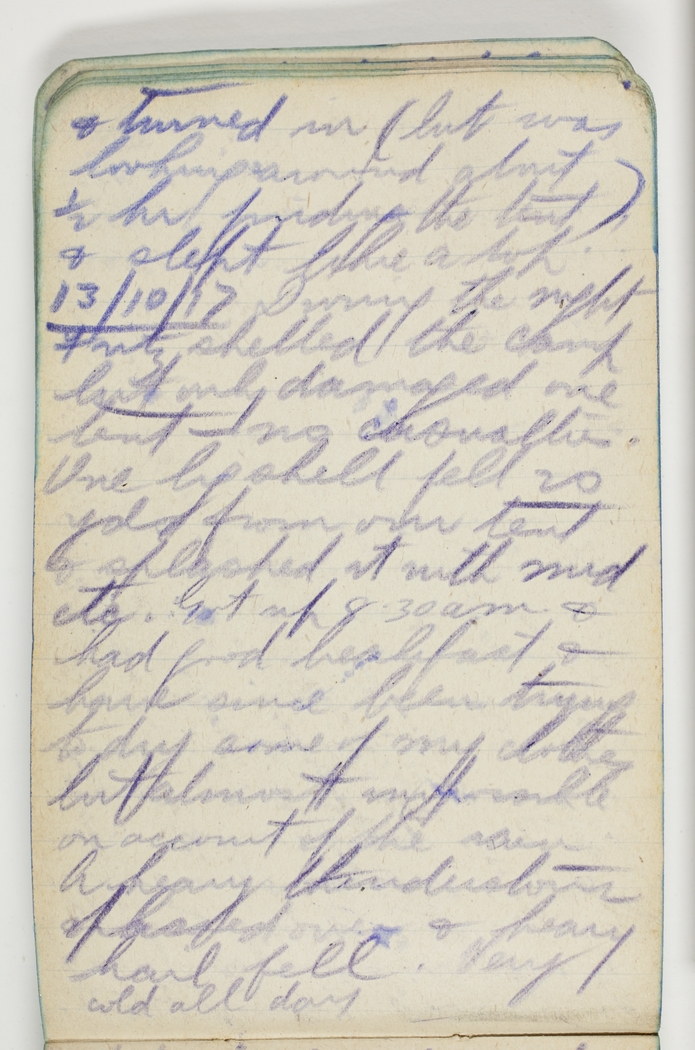 & turned in (but was
looking around about
½ hr finding the tent)
& slept like a top.
13/10/17 During the night
Fritz shelled the camp
but only damaged one
tent – no casualties.
One big shell fell 20
yds from our tent
& splashed it with mud
etc. Got up 8.30am &
had good breakfast &
have since been trying
to dry some of my clothes
but almost impossible
on account of the rain
A heavy thunderstorm
passed over & heavy
hail fell. Very
cold all day